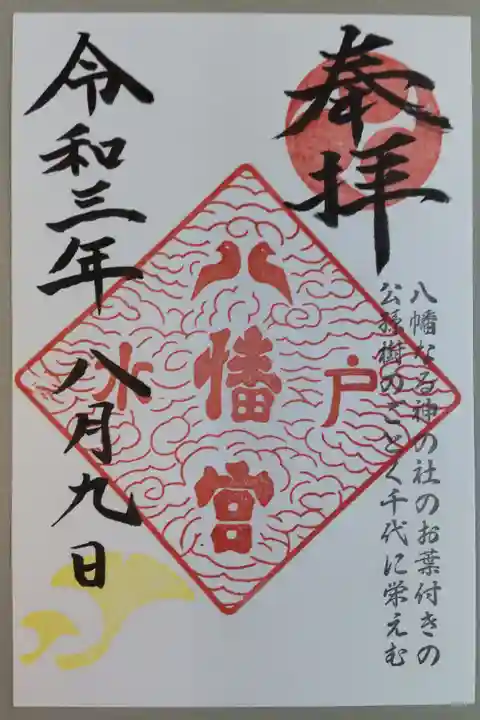 奉拝
八幡なる神の社のお葉付きの
公孫樹のごとく千代に栄えむ
水戸
八幡宮
令和三年 八月九日